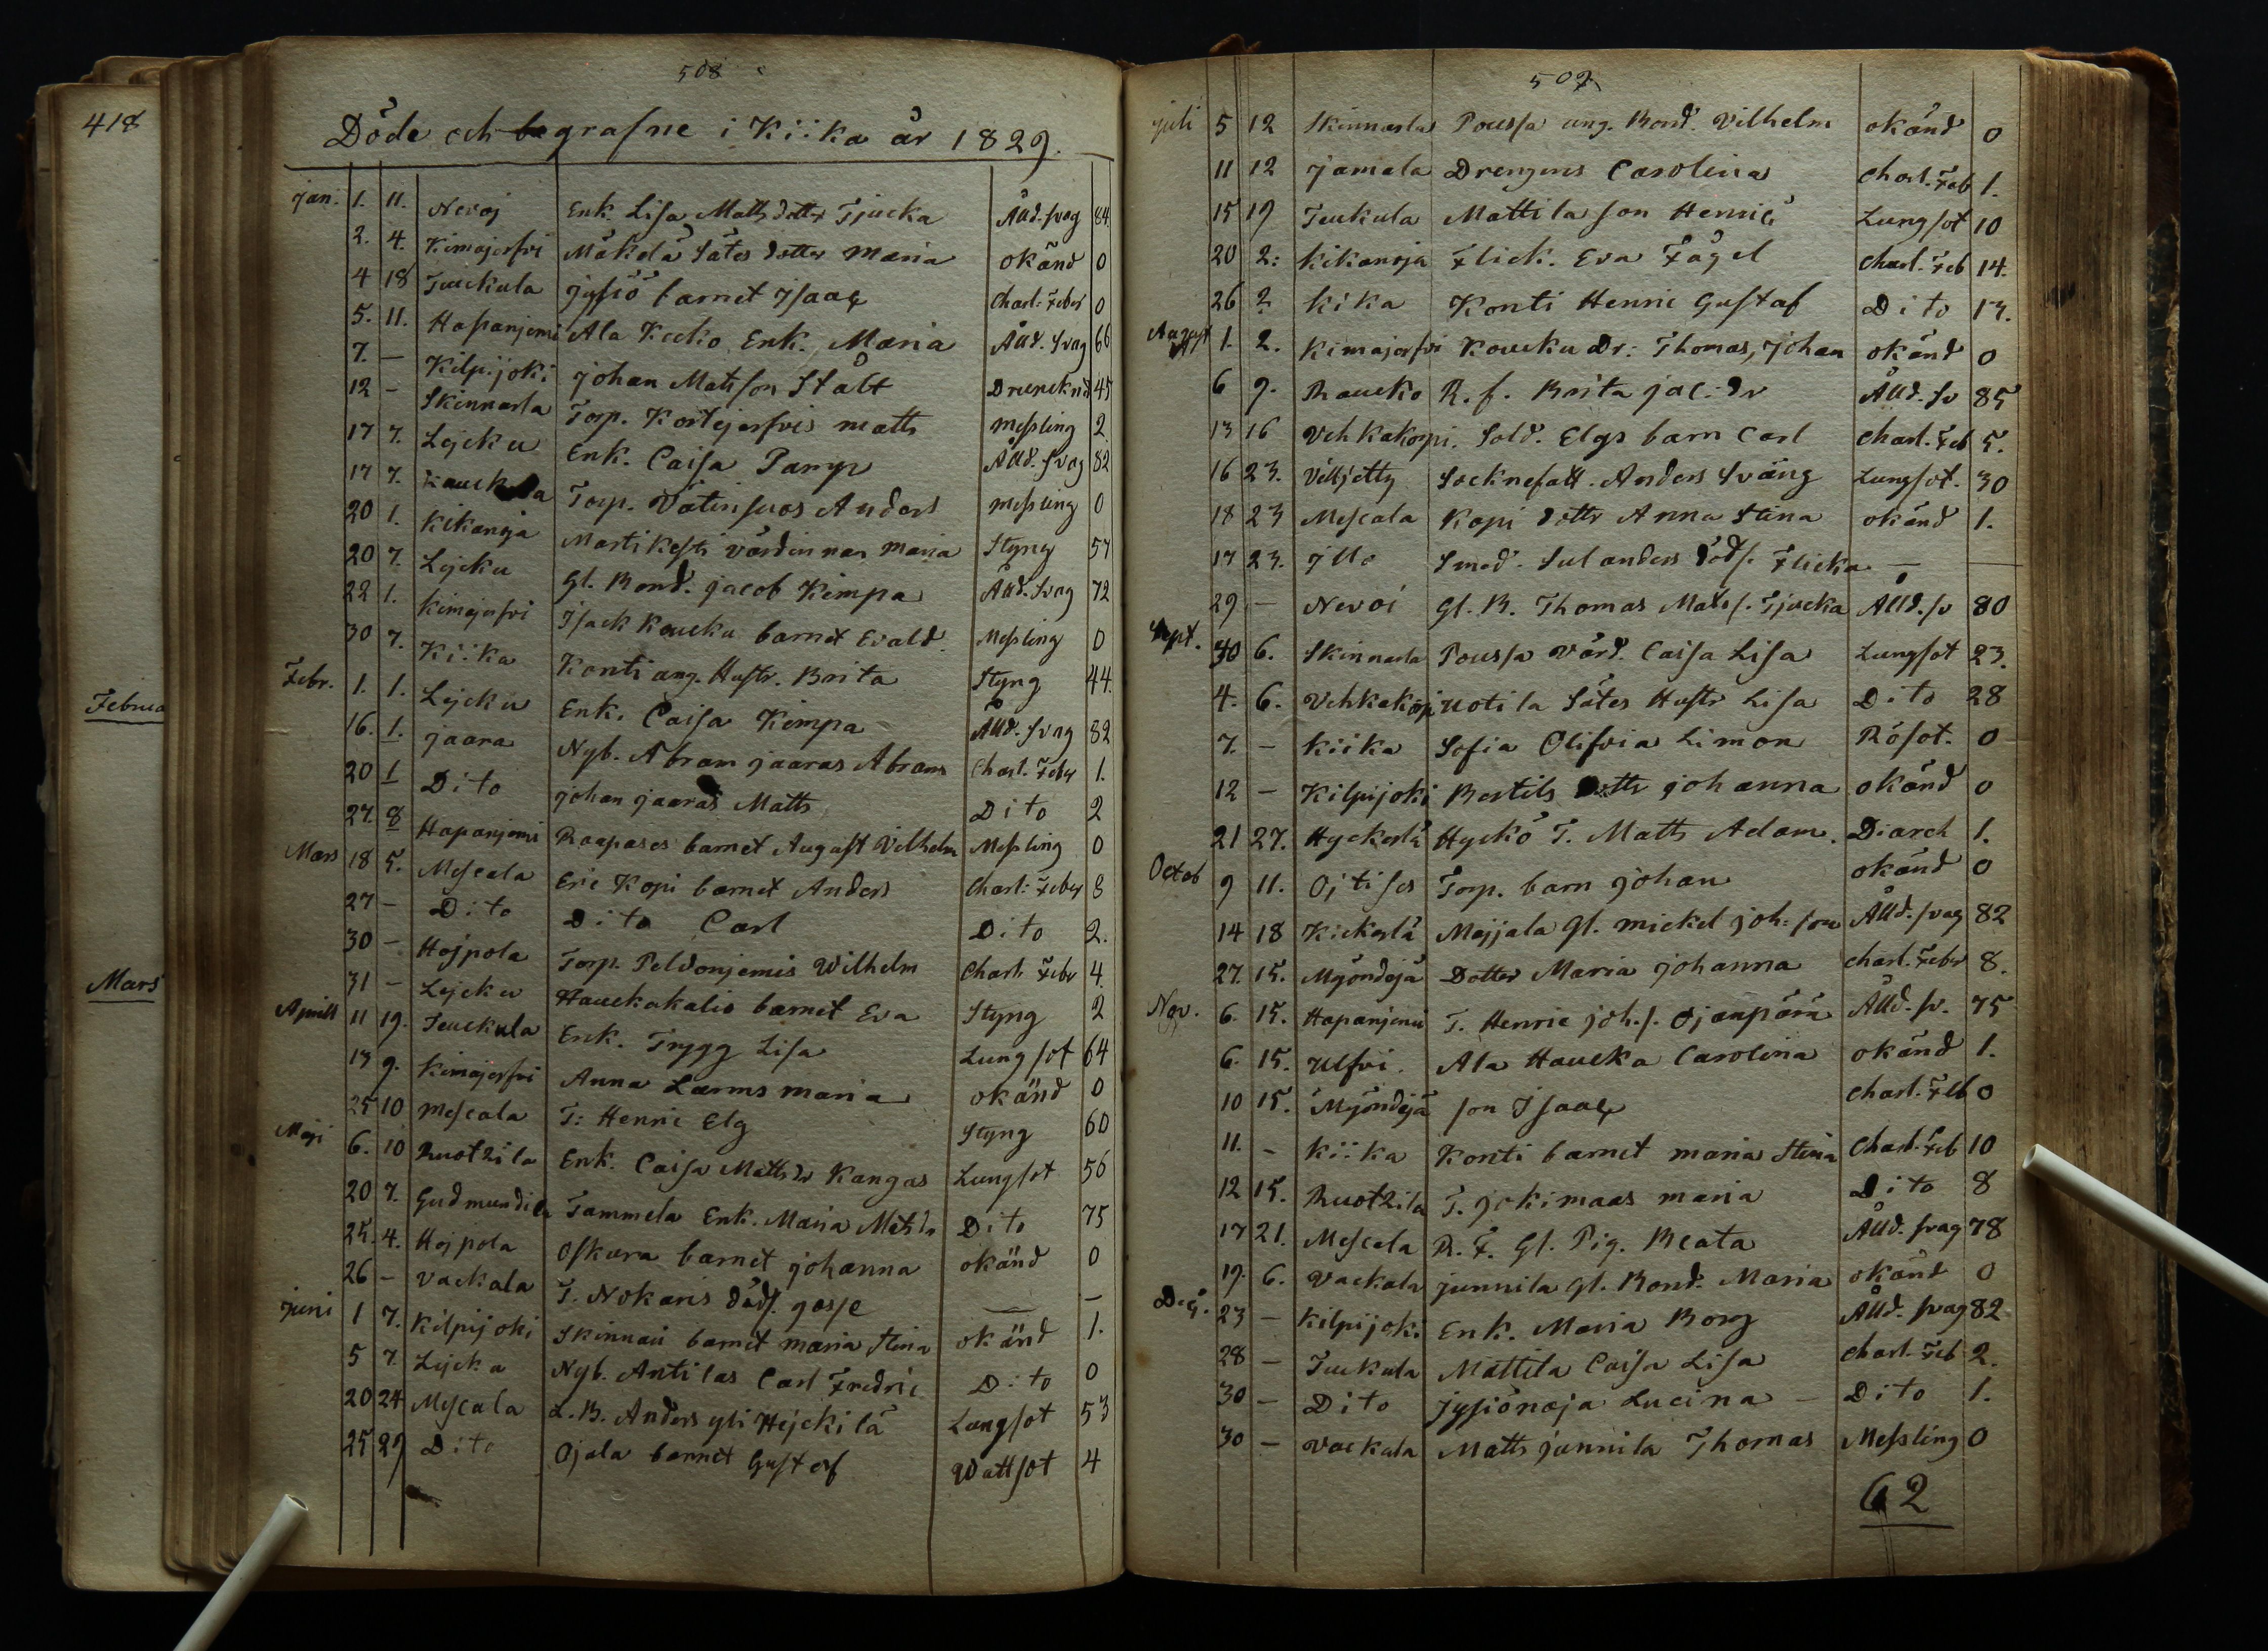 418
Februa
Mars
508
Döde och begrafne i Kiika år 1829.
Jan. 1. 11. Nevoj Enk. Lisa Matts dotter Tjucka Ålld. svag 84.
2. 4. Kimajerfvi Mäkelä Säters dotter Maria okänd 0
4 18 Teuckula Jysiö barnet Isaac Charl: Feber 0
5. 11. Hapanjemi Ala Kecko Enk. Maria Ålld. Svag 66
7. – Kilpijoki Johan Matsson Stålt Drunknad 45
12 – Skinnarla Torp. Kortejerfvis Matts Messling 2
17 7. Lejcku Enk. Caisa Pamp Ålld. Svag 82
17 7. Torp. Vätinsuos Anders Messling 0
20 1. Kikanoja Martikesti värdinnan Maria Styng 57
20 7. Lejcku Gl. Bond. Jacob Kimpa Ålld. Svag 72
22 1. Kimajerfvi Isack Koucku barnet Evald. Messling 0
30 7. Kiika Konti ung. Hustr. Brita Styng 44.
Febr. 1. 1. Lejcku Enk. Caisa Kimpa Ålld. Svag 82
16. 1. Jaara Nyb. Abram Jaaras Abram Charl. Feber 1.
20 1 Dito Johan Jaaras Matts Dito 2
27. 8 Hapanjemi Raapases barnet August Vilhelm Messling 0
Mars 18 5. Mescala Eric Kopi barnet Anders Charl: Feber 8
27 – Dito Dito Carl Dito 2.
30 – Hojpola Torp. Peldonjemis Wilhelm Charl. Feber 4.
31 – Lejcku Hauckakalio barnet Eva Styng 2
Aprill 11 19. Teuckula Enk. Trygg Lisa Lungsot 64
13 9. Kimajerfvi Anna Larms Maria okänd 0
25 10 Mescala T: Henric Elg Styng 60
Maji 6. 10 Ruotzila Enk. Caisa Matts Dr Kangas Lungsot 56
20 7. Gudmundila Tammela Enk. Maria Mats Dr Dito 75
25. 4. Hojpola Oskura barnet Johanna okänd 0
26 – Vackala T. Nokaris dödf. gosse – –
Juni 1 7. Kilpijoki Skinnari barnet Maria Stina okänd 1.
5 7. Lejcku Nyb. Antilas Carl Fredric Dito 0
20 24 Mescala L.B. Anders yli Hejckilä Lungsot 53
25 29 Dito Ojala barnet Gustaf Wattsot 4
509
Juli 5 12 Skinnarla Poussa ung. Bond. Vilhelm okänd 0
11 12 Jamala Drengens Carolina Charl. Feb 1.
15 19 Teukula Mattila son Henric Lungsot 10
20 2: Kikanoja Flick. Eva Fågel Charl. Feb 14.
26 2 Kika Konti Henric Gustaf Dito 13.
August 1. 2. Kimajerfvi Koucku Dr: Thomas, Johan okänd 0
6 9. Raucko R.f. Brita Jac: Dr Ålld. Sv 85
13 16 Vehkakorpi. Sold. Elgs barn Carl Charl. Feb 5.
16 23. Villjotty Socknefatt. Anders Sväng Lungsot. 30
18 23 Mescala Kopi dottr Anna Stina okänd 1.
17 23. Illo Smed. Sulanders dödf. Flicka – –
29 – Nevoi Gl. B. Thomas Matss. Tjucka Ålld. sv 80
Sept. 30 6. Skinnarla Poussa värd. Caisa Lisa Lungsot 23.
4. 6. Vehkakorpi Uotila Säters Hustr Lisa Dito 28
7. – Kiika Sofia Olifvia Limon Rösot. 0
12 – Kilpijoki Bertils dottr Johanna okänd 0
21 27. Hyckerlä Hyckö T. Matts Adam. Diareh 1.
Octob 9 11. Ojtises Torp. barn Johan okänd 0
14 18 Kickerlä Majjala Gl. Mickel Joh: son Ålld. svag 82
27. 15. Myöndejä Dotter Maria Johanna Charl. Feber 8.
Nov. 6. 15. Hapanjemi T. Henric Joh. s. Ojanpärä Ålld. sv. 75
6. 15. Ulfvi. Ala Haucka Carolina okänd 1.
10 15. Myöndejä son Isaac Charl. Feb 0
11. – Kiika Konti barnet Maria Stina Charl. Feb 10
12 15. Ruotzila T. Jokimaas Maria Dito 8
17 21. Mescala R. F. Gl. Pig. Beata Ålld. svag 78
19. 6. Vackala Junnila Gl. Bond. Maria okänd 0
Dec. 23 – Kilpijoki Enk. Maria Borg Ålld. svag 82
28 – Teukula Mattila Caisa Lisa Charl. Feb 2.
30 – Dito Jysiönoja Lucina – Dito 1.
30 – Vackala Matts Junnila Thomas Messling 0
62